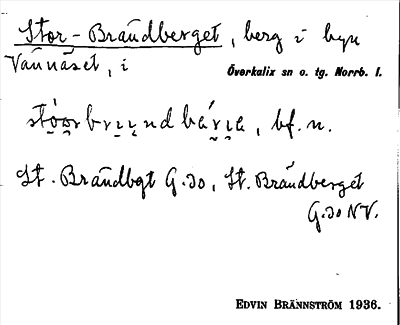 Stor-Brändberget, berg i byn
Vännäset, i
Överkalix sn o. tg. Norrb. l.
bf. n.
St. Brändbgt G.do, St. Brändberget
G.do NV.
EDVIN BRÄNNSTRÖM 1936.